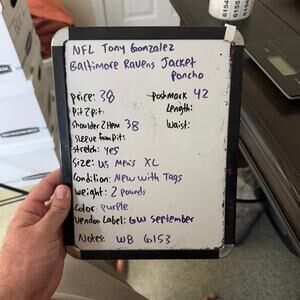 NFL Tony Gonzalez
Baltimore Ravens Jacket
Poncho
price: 38 poshmark 42
Pit 2 pit: Length:
Shoulder 2 Hem 38 Waist:
Sleeve from pit:
Stretch: yes
Size: US Men's XL
Condition: New with Tags
Weight: 2 pounds
Color: purple
Vendoo Label: GW September
Notes: WB 6153
6154
6155